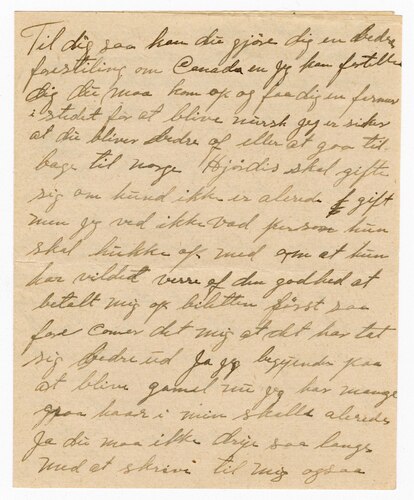 Til dig saa kan du gjøre dig en bedre
forestiling om Canada en jeg kan fortelle
dig du maa kom op og faa dig en farmer
i stedet for at blive nursh jeg er siker
at du bliver bedre of eller at gaa til
bage til norge Hjørdis skal gifte
sig om hund ikke er alerede gift
men jeg ved ikke vad person hun
skal hukke op med om at hun
har vildet verre af den godhed at
betalt mig op biletten først saa
fore comer det mig at det har tat
sig bedre ud Ja jeg begynder paa
at blive gamel nu jeg har mange
graa haar i min skelle alerede
Ja du maa ikke drije saa lange
med at skrive til mig ogsaa